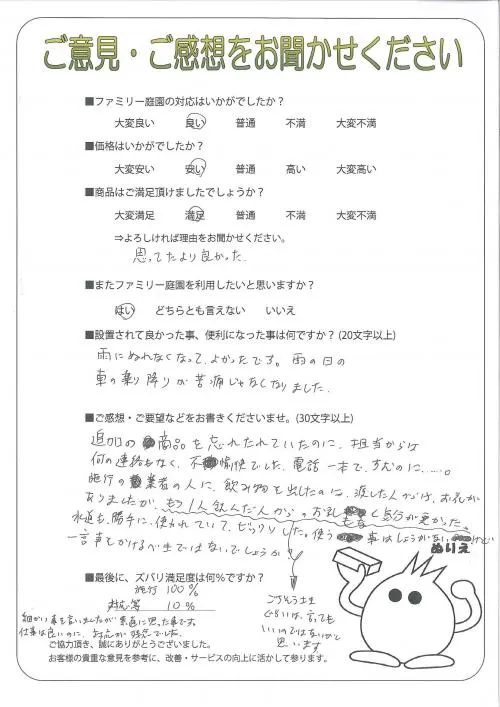 ご意見・ご感想をお聞かせください
■ファミリー庭園の対応はいかがでしたか？
大変良い 良い 普通 不満 大変不満
■価格はいかがでしたか？
大変安い 安い 普通 高い 大変高い
■商品はご満足頂けましたでしょうか？
大変満足 満足 普通 不満 大変不満
⇒よろしければ理由をお聞かせください。
思ってたより良かった。
■またファミリー庭園を利用したいと思いますか？
はい どちらとも言えない いいえ
■設置されて良かった事、便利になった事は何ですか？(20文字以上)
雨にぬれなくなって、よかったです。雨の日の
車の乗り降りが苦痛じゃなくなりました。
■ご感想・ご要望などをお書きくださいませ。(30文字以上)
追加の商品を忘れられていたのに、担当からは
何の連絡もなく、不愉快でした。電話一本ですむのに……。
施行の業者の人に、飲み物を出したのに、渡した人からは、お礼が
ありましたが、もう1人飲んだ人からのお礼もなく気分が悪かった。
水道も、勝手に、使われていて、びっくりした。使う事はしょうがないけど
一言声をかけるべきではないでしょうか
ぬりえ
■最後に、ズバリ満足度は何％ですか？
施行 100％
対応等 10％
ごちそう士
ぐらいは、言っても
いいのではないかと
思います
細かい事を言いましたが素直に思った事です。
仕事は良いのに、対応が残念でした。
ご協力頂き、誠にありがとうございました。
お客様の貴重な意見を参考に、改善・サービスの向上に活かして参ります。